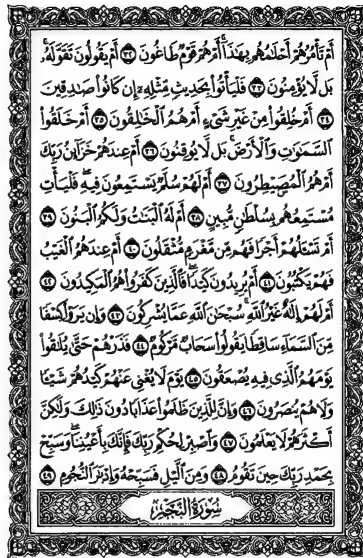 أَمْ تَأْمُرُهُمْ أَحْلَٰمُهُم بِهَٰذَآ أَمْ هُمْ قَوْمٌ طَاغُونَ ٣٢ أَمْ يَقُولُونَ تَقَوَّلَهُۥ
بَل لَّا يُؤْمِنُونَ ٣٣ فَلْيَأْتُوا۟ بِحَدِيثٍ مِّثْلِهِۦٓ إِن كَانُوا۟ صَٰدِقِينَ
٣٤ أَمْ خُلِقُوا۟ مِنْ غَيْرِ شَىْءٍ أَمْ هُمُ ٱلْخَٰلِقُونَ ٣٥ أَمْ خَلَقُوا۟
ٱلسَّمَٰوَٰتِ وَٱلْأَرْضَ بَل لَّا يُوقِنُونَ ٣٦ أَمْ عِندَهُمْ خَزَآئِنُ رَبِّكَ
أَمْ هُمُ ٱلْمُصَۣيْطِرُونَ ٣٧ أَمْ لَهُمْ سُلَّمٌ يَسْتَمِعُونَ فِيهِ فَلْيَأْتِ
مُسْتَمِعُهُم بِسُلْطَٰنٍ مُّبِينٍ ٣٨ أَمْ لَهُ ٱلْبَنَٰتُ وَلَكُمُ ٱلْبَنُونَ ٣٩
أَمْ تَسْـَٔلُهُمْ أَجْرًا فَهُم مِّن مَّغْرَمٍ مُّثْقَلُونَ ٤٠ أَمْ عِندَهُمُ ٱلْغَيْبُ
فَهُمْ يَكْتُبُونَ ٤١ أَمْ يُرِيدُونَ كَيْدًا فَٱلَّذِينَ كَفَرُوا۟ هُمُ ٱلْمَكِيدُونَ ٤٢
أَمْ لَهُمْ إِلَٰهٌ غَيْرُ ٱللَّهِ سُبْحَٰنَ ٱللَّهِ عَمَّا يُشْرِكُونَ ٤٣ وَإِن يَرَوْا۟ كِسْفًا
مِّنَ ٱلسَّمَآءِ سَاقِطًا يَقُولُوا۟ سَحَابٌ مَّرْكُومٌ ٤٤ فَذَرْهُمْ حَتَّىٰ يُلَٰقُوا۟
يَوْمَهُمُ ٱلَّذِى فِيهِ يُصْعَقُونَ ٤٥ يَوْمَ لَا يُغْنِى عَنْهُمْ كَيْدُهُمْ شَيْـًٔا
وَلَا هُمْ يُنصَرُونَ ٤٦ وَإِنَّ لِلَّذِينَ ظَلَمُوا۟ عَذَابًا دُونَ ذَٰلِكَ وَلَٰكِنَّ
أَكْثَرَهُمْ لَا يَعْلَمُونَ ٤٧ وَٱصْبِرْ لِحُكْمِ رَبِّكَ فَإِنَّكَ بِأَعْيُنِنَا وَسَبِّحْ
بِحَمْدِ رَبِّكَ حِينَ تَقُومُ ٤٨ وَمِنَ ٱلَّيْلِ فَسَبِّحْهُ وَإِدْبَٰرَ ٱلنُّجُومِ ٤٩
سُورَةُ النَّجْمِ